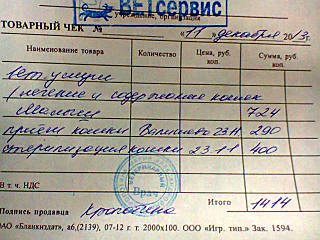 ВЕТсервис
учреждение, организация
ТОВАРНЫЙ ЧЕК № «11» декабря 2013г.
Наименование товара Количество Цена, руб. коп. Сумма, руб. коп.
Вет. услуги
(лечение и содержание кошек
724
приём кошки 23.11 290
стерилизация кошки 23.11 400
В т. ч. НДС
ВЕТЕРИНАРНЫЙ
Врач
Итого 1414
Подпись продавца
ОАО «Бланкиздат», а6,(2139), 07-12 г. т. 2000х100. ООО «Игр. тип.» Зак. 1594.